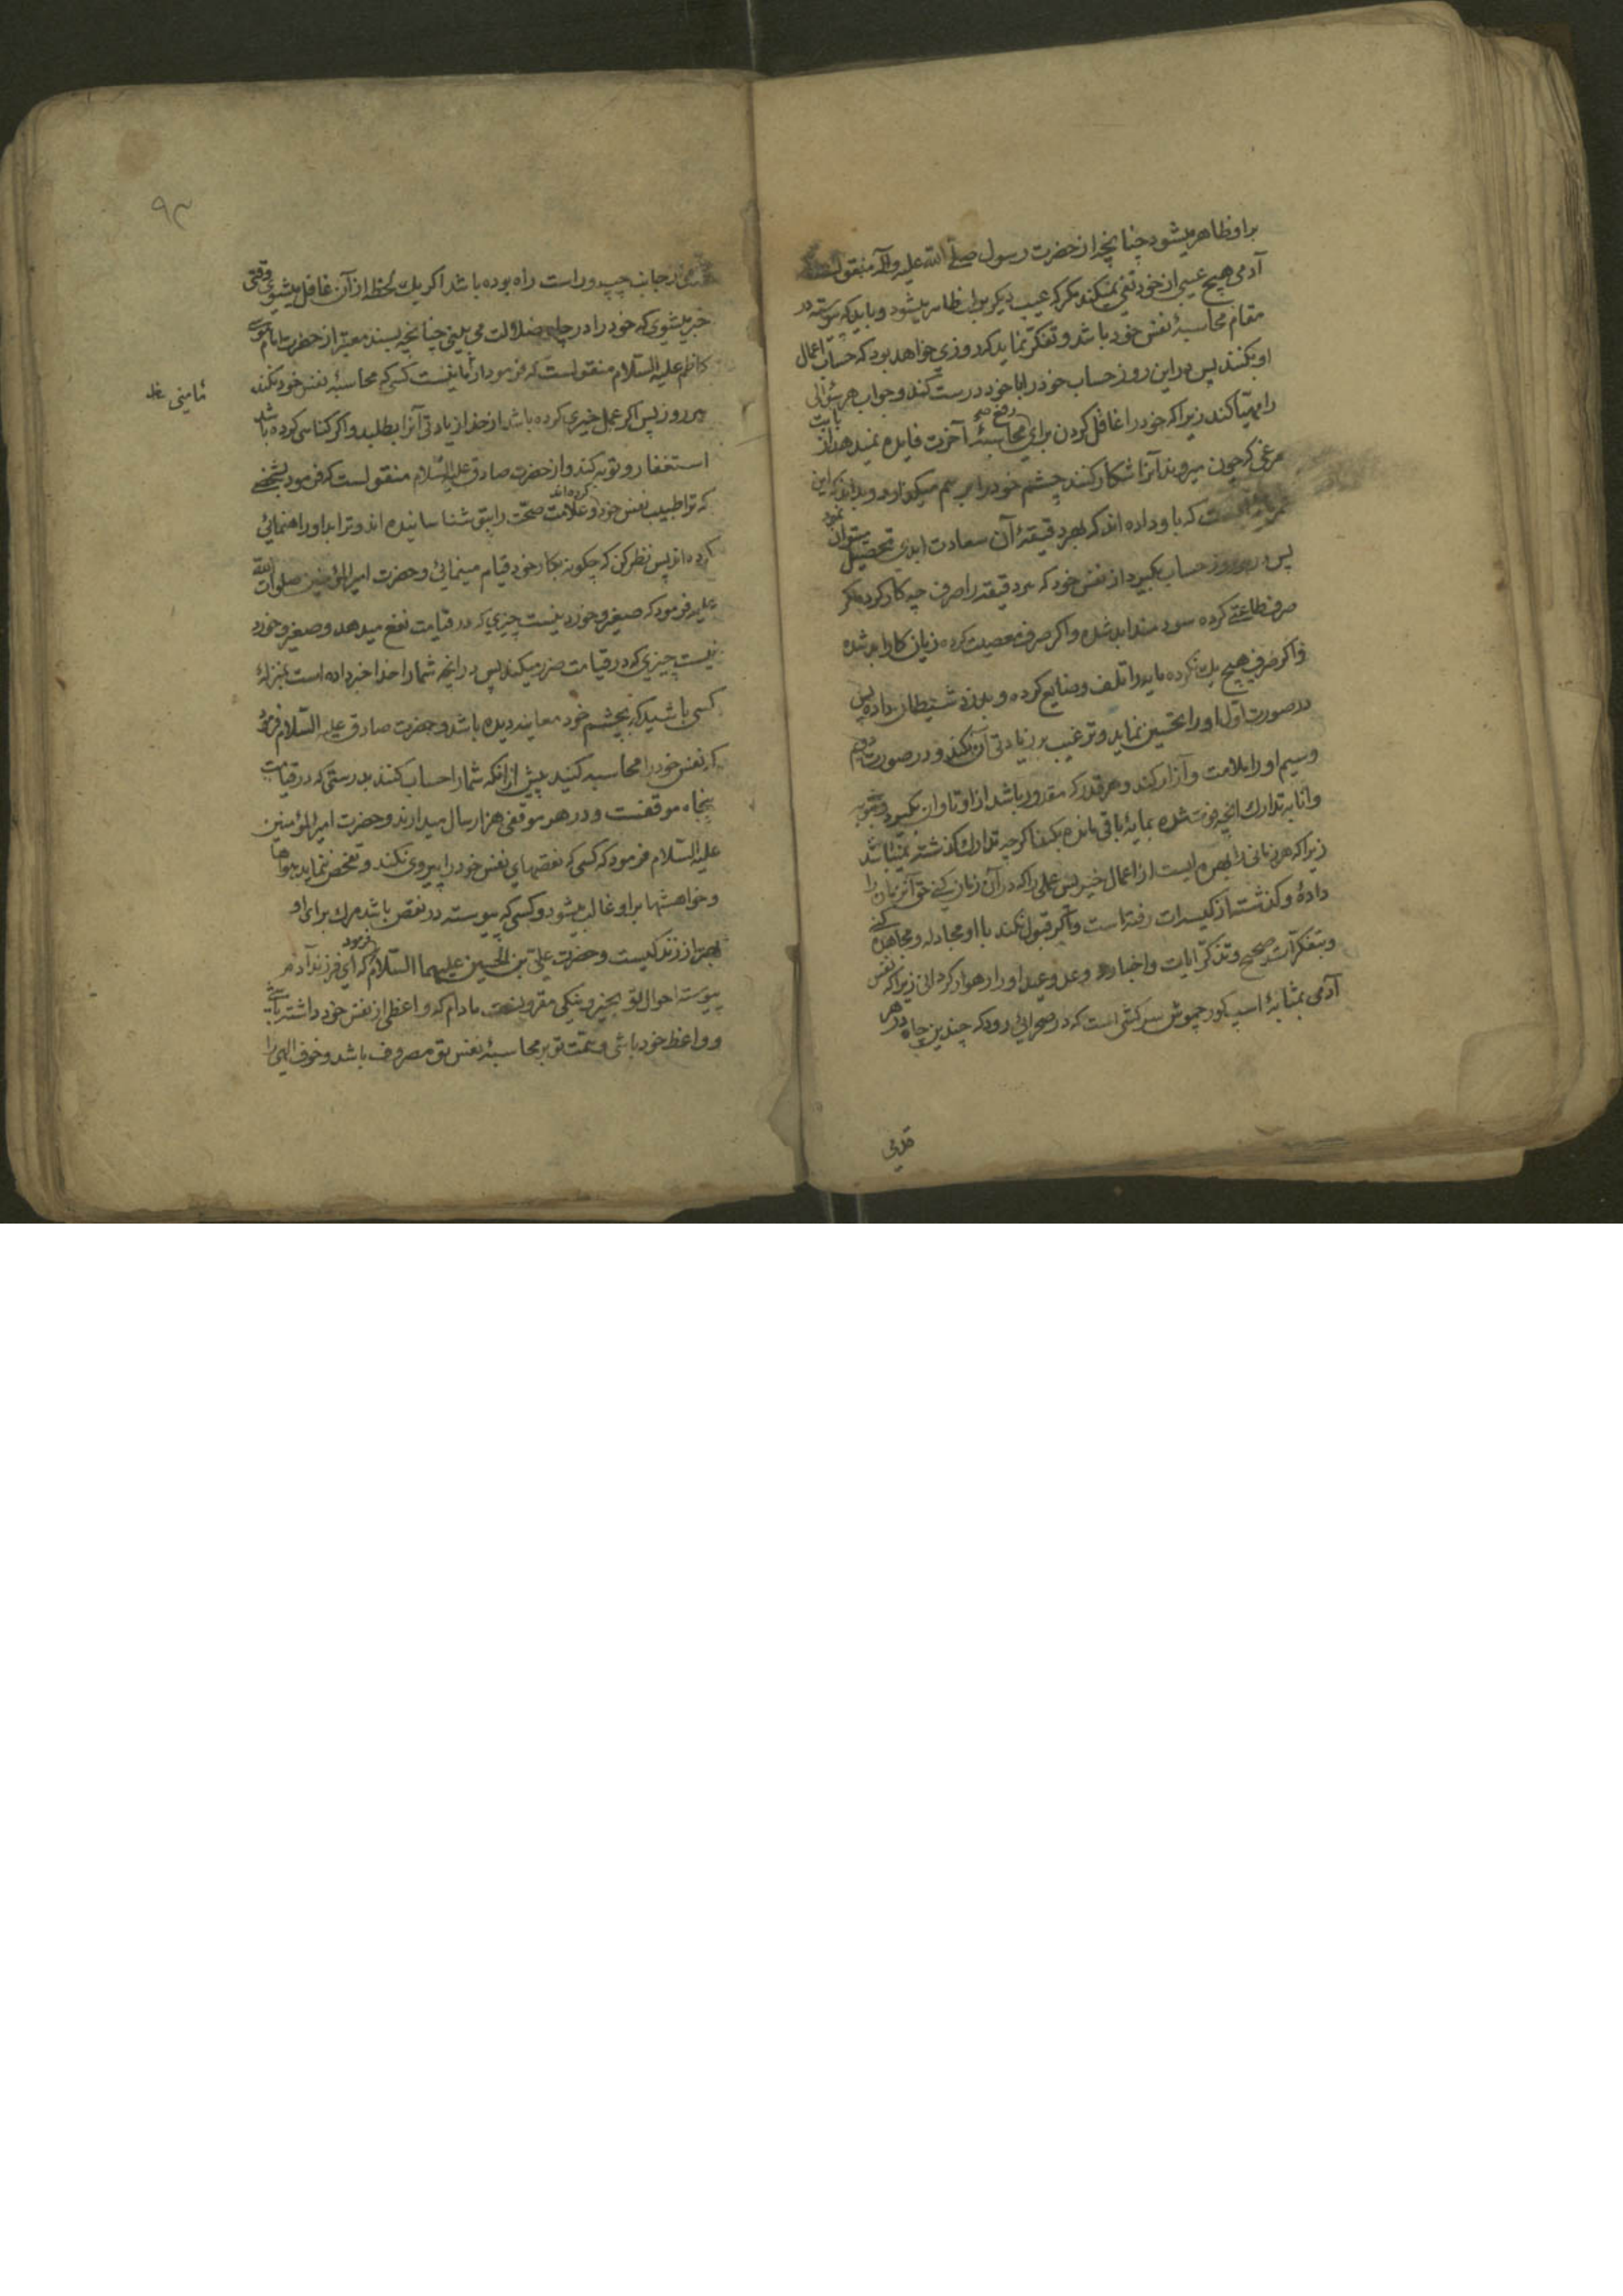 براو ظاهر میشود چنانچه از حضرت رسول صلّی الله علیه وآله منقول
آدمی هیچ عیبی از خود نفی نمیکند مکر که عیب دیکر براو ظاهر میشود و باید که پیوسته در
مقام محاسبهٔ نفس خود باشد و تفکر نماید که روزی خواهد بود که حساب اعمال
او بکنند پس در این روز حساب خود را با خود درست کند و جواب هر سؤالی
را مهیّا کند زیرا که خود را غافل کردن برای رفع محاسبهٔ آخرت فایده نمیدهد از بابت
مرغی که چون میروند آنرا شکار کنند چشم خود را بر هم میکذارد و بداند که این
عمر مایه ایست که باو داده اند که بهر دقیقهٔ آن سعادت ابدی تحصیل میتوان نمود
پس در هر روز حساب بکیرد از نفس خود که هر دقیقه را صرف چه کار کرده اکر
صرف طاعتی کرده سود مند ابد شده و اکر صرف معصیت کرده زیان کار ابد شده
و اکر صرف هیچ یک نکرده مایه را تلف و ضایع کرده و بدزد شیطان داده پس
در صورت اوّل او را تحسین نماید و ترغیب بر زیادتی آن بکند و در صورت دویم
وسیم او را ملامت و آزار کند و هر قدر که مقدور باشد از او تاوان بکیرد و بتوبه
وانابه تدارک انچه فوت شده بمایهٔ باقی مانده بکند اکرچه تدارک کذشته نمیباشد
زیرا که هر زمانی را بهره ایست از اعمال خیر پس عملی را که در آن زمان کنی حق آنزمان را
دادهٔ و کذشته از کیسه‌ات رفته است و اکر قبول نکند با او مجادله و مجاهده کنی
و بتفکّرات صحیح و تذکّر ایات و اخبار و وعد و وعید او را رهوار کردانی زیرا که نفس
آدمی بمثابهٔ اسب کور چموش سرکشی است که در صحرائی رود که چندین چاه در هر
قدمی
۹۳
قدمی در جانب چپ و راست راه بوده باشد اکر یک لحظه از آن غافل میشوی وقتی
خبر میشوی که خود را در چاه ضلالت می بینی چنانچه بسند معتبر از حضرت امام موسی
کاظم علیه السّلام منقولست که فرمود از ما نیست کسی که محاسبهٔ نفس خود نکند
هر روز پس اکر عمل خیری کرده باشد از خدا زیادتی آنرا بطلبد و اکر کناهی کرده باشد
استغفار و توبه کند و از حضرت صادق علیه السّلام منقولست که فرمود بشخصی
که ترا طبیب نفس خود کرده اند و علامت صحّت را بتو شناسانیده اند و ترا بدوا راهنمائی
کرده اند پس نظر کن که چکونه بکار خود قیام مینمائی و حضرت امیرالمؤمنین صلوات الله
علیه فرمود که صغیر و خورد نیست چیزی که در قیامت نفع میدهد و صغیر و خورد
نیست چیزی که در قیامت ضرر میکند پس در انچه شما را خدا خبر داده است بمنزلهٔ
کسی باشید که بچشم خود معاینه دیده باشد و حضرت صادق علیه السّلام فرمود
که نفس خود را محاسبه کنید پیش از انکه شما را حساب کنند بدرستی که در قیامت
پنجاه موقفست و در هر موقفی هزار سال میدارند و حضرت امیرالمؤمنین
علیه السّلام فرمود که کسی که نقصهای نفس خود را پیروی نکند و تفحّص ننماید هواها
و خواهشها براو غالب میشود و کسی که پیوسته در نقص باشد مرک برای او
بهتر از زندکیست و حضرت علی بن الحسین علیهما السّلام فرمود که ای فرزند آدم
پیوسته احوال تو بخیر و نیکی مقرونست مادام که واعظی از نفس خود داشته باشی
و واعظ خود باشی و همّت تو بر محاسبهٔ نفس تو مصروف باشد و خوف الهی را